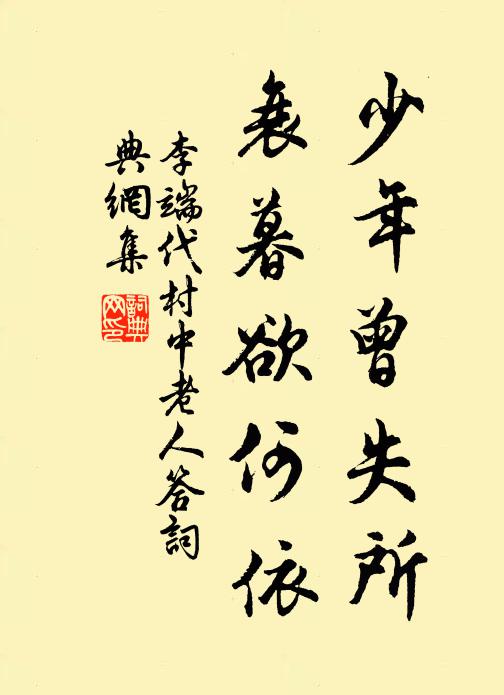 少年曾失所
衰暮欲何依
李端代村中老人答詞
典網集
詞典網印